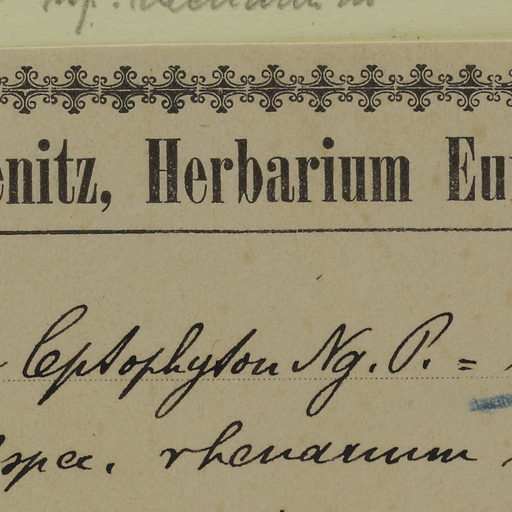 enitz, Herbarium Eur
leptophyton Ng. P. =
spec. rhenanum